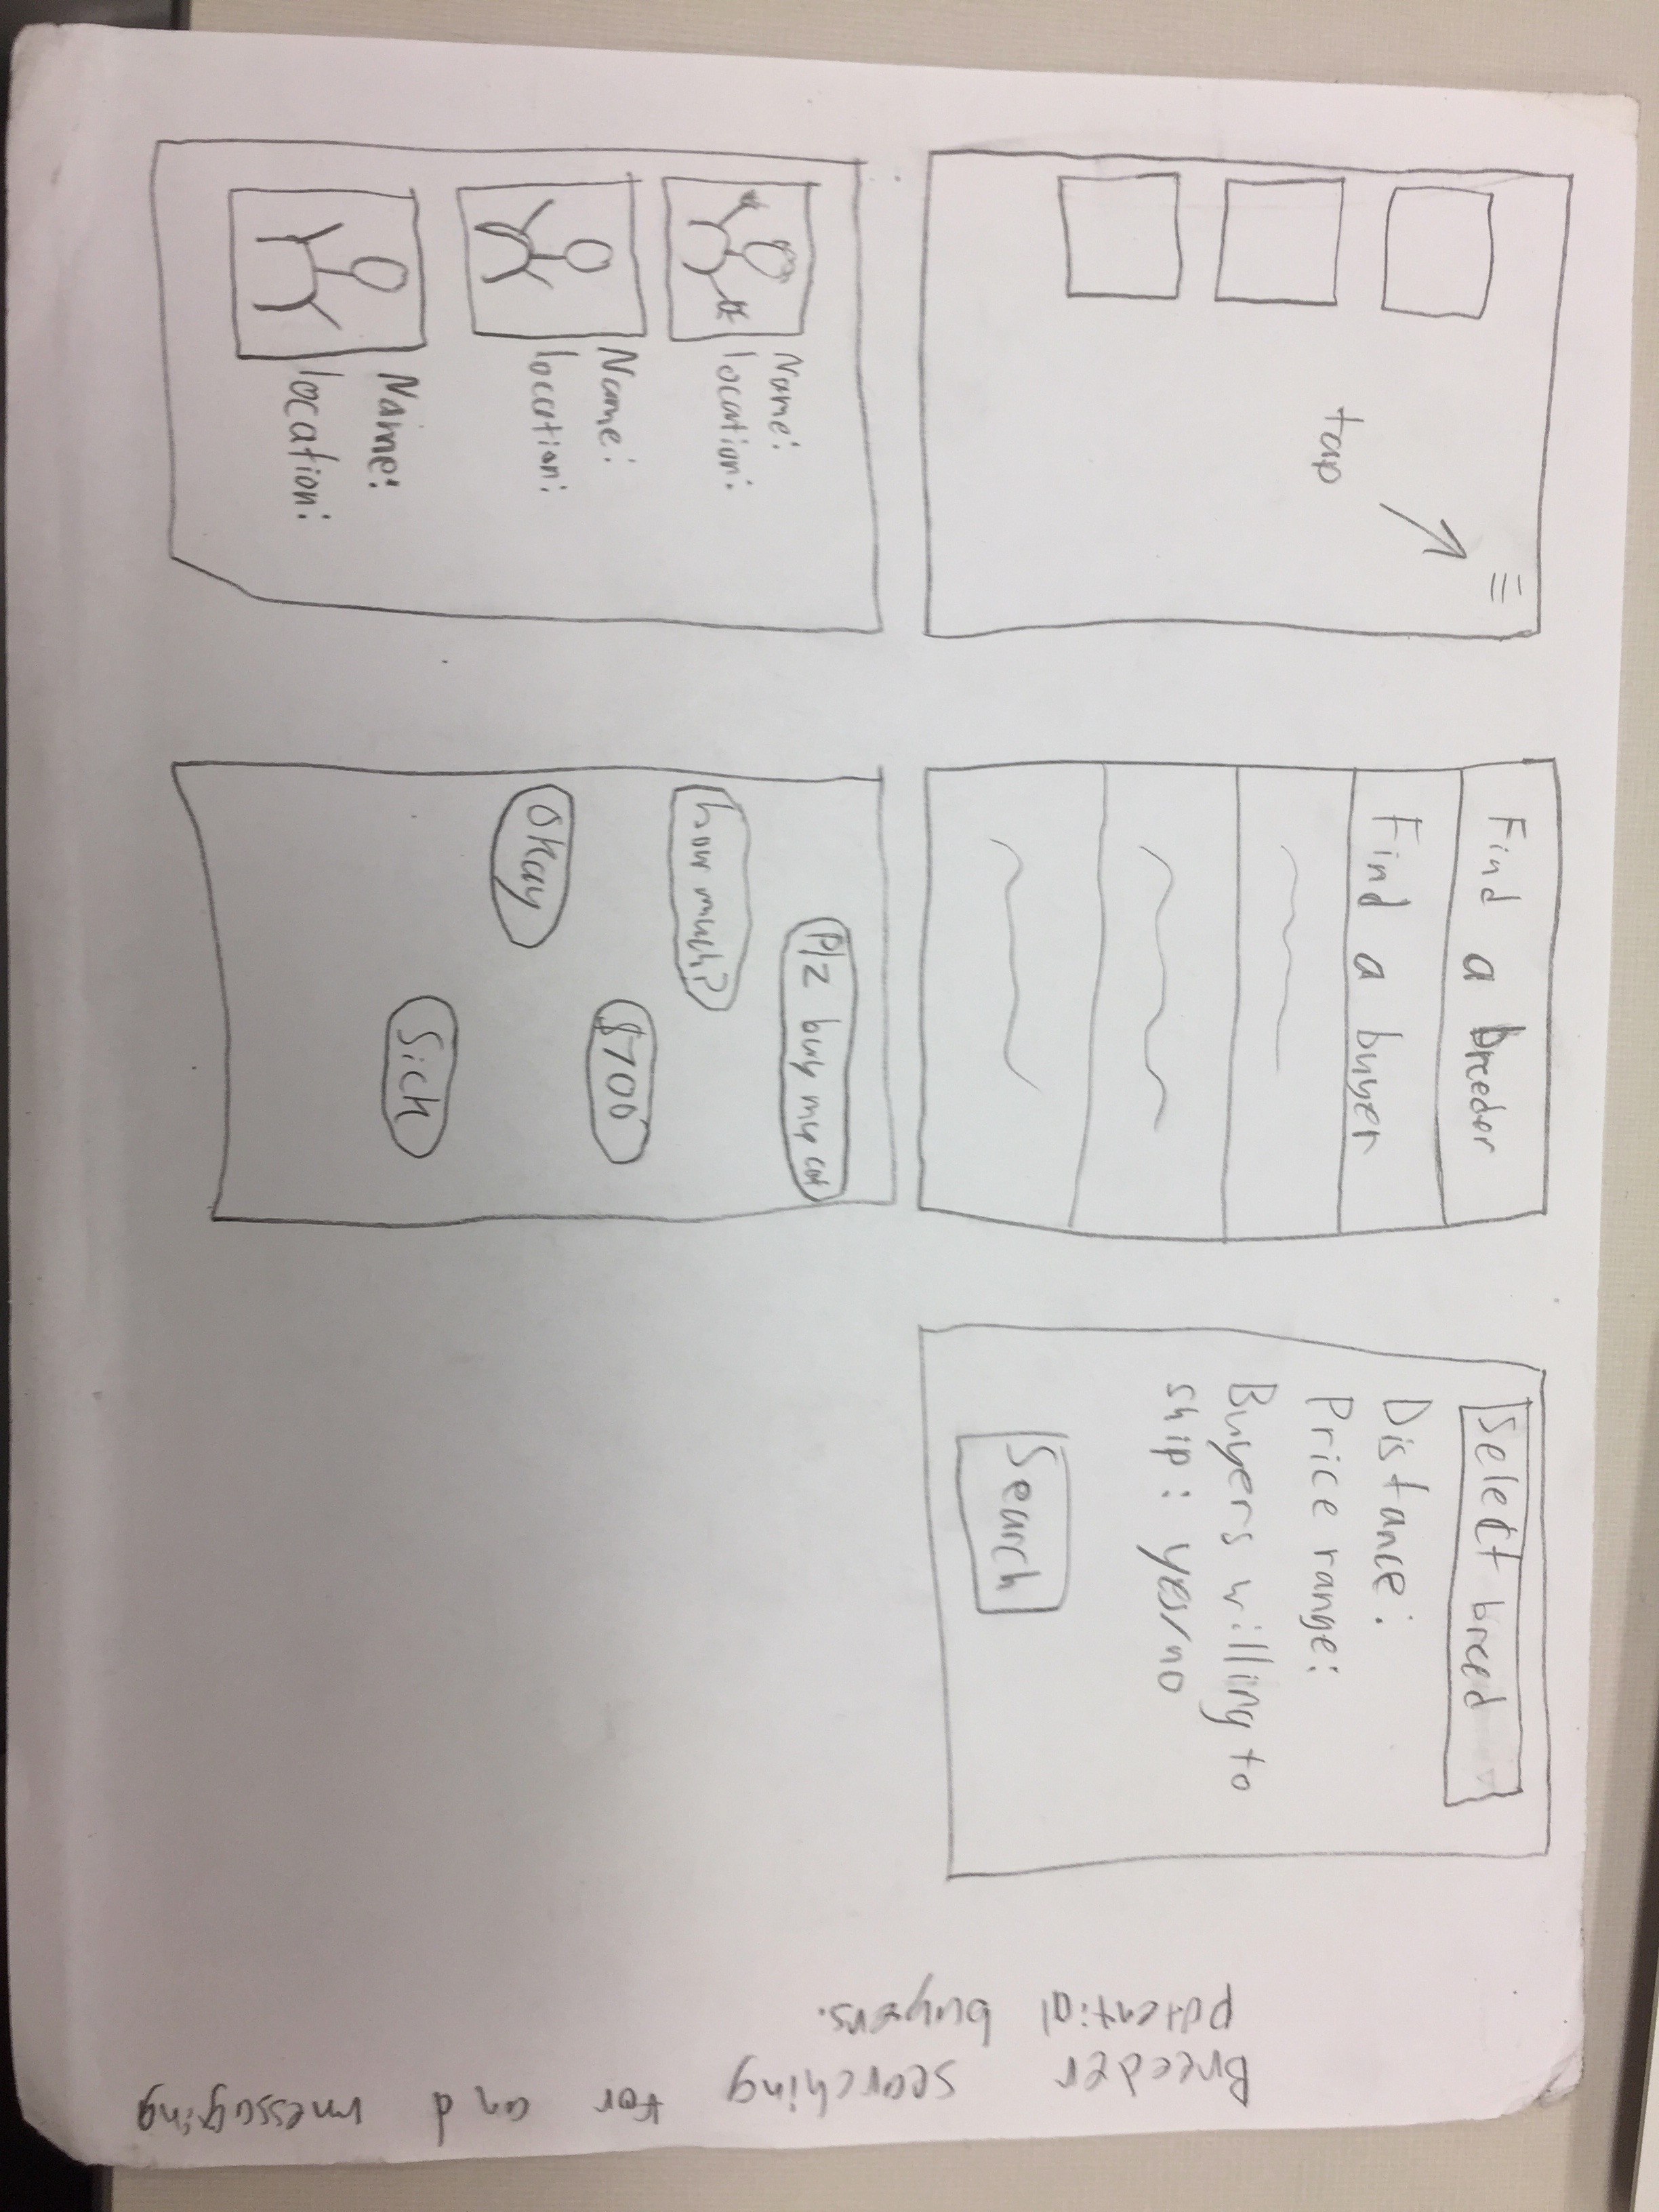 tap
Find a breeder
Find a buyer
Select breed
Distance:
Price range:
Buyers willing to
ship: yes/no
Search
Name:
location:
Name:
location:
Name:
location:
Plz buy my cat
how much?
$700
Okay
Sick
Breeder searching for and messaging
potential buyers.